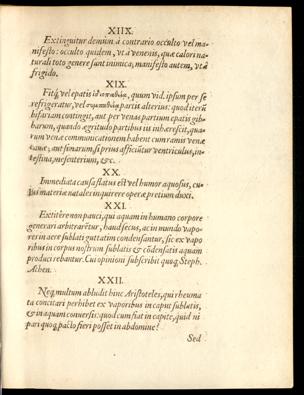 XIIX.
Extinguitur demùm à contrario occulto vel ma-
nifesto: occulto quidem, vt à venenis, quæ calori natu-
rali toto genere sunt inimica, manifesto autem, vt à
frigido.
XIX.
Fitq́; vel epatis ἰδιοπαθεία, quum vid. ipsum per se
refrigeratur, vel συμπαθεία partis alterius: quod iterũ
bifariam contingit, aut per venas partium epatis gib-
barum, quando ægritudo partibus iis inhærescit, qua-
rum venæ communicationem habent cum ramis venæ
cauæ, aut simarum, si prius afficiũtur ventriculus, in-
testina, mesenterium, &c.
XX.
Immediata causa flatus est vel humor aquosus, cu-
ius materiæ natales inquirere operæ pretium duxi.
XXI.
Extitêre non pauci, qui aquam in humano corpore
generari arbitrarẽtur, haud secus, ac in mundo vapo-
res in aere sublati guttatim condensantur, sic ex vapo-
ribus in corpus nostrum sublatis & cõdensatis aquam
produci rebantur. Cui opinioni subscribit quoq́; Steph.
Athen.
XXII.
Neq́; multum abludit hinc Aristoteles, qui rheuma
ta concitari perhibet ex vaporibus in caput sublatis,
& in aquam conuersis: quod cum fiat in capite, quid ni
pari quoq́; pacto fieri posset in abdomine?
Sed